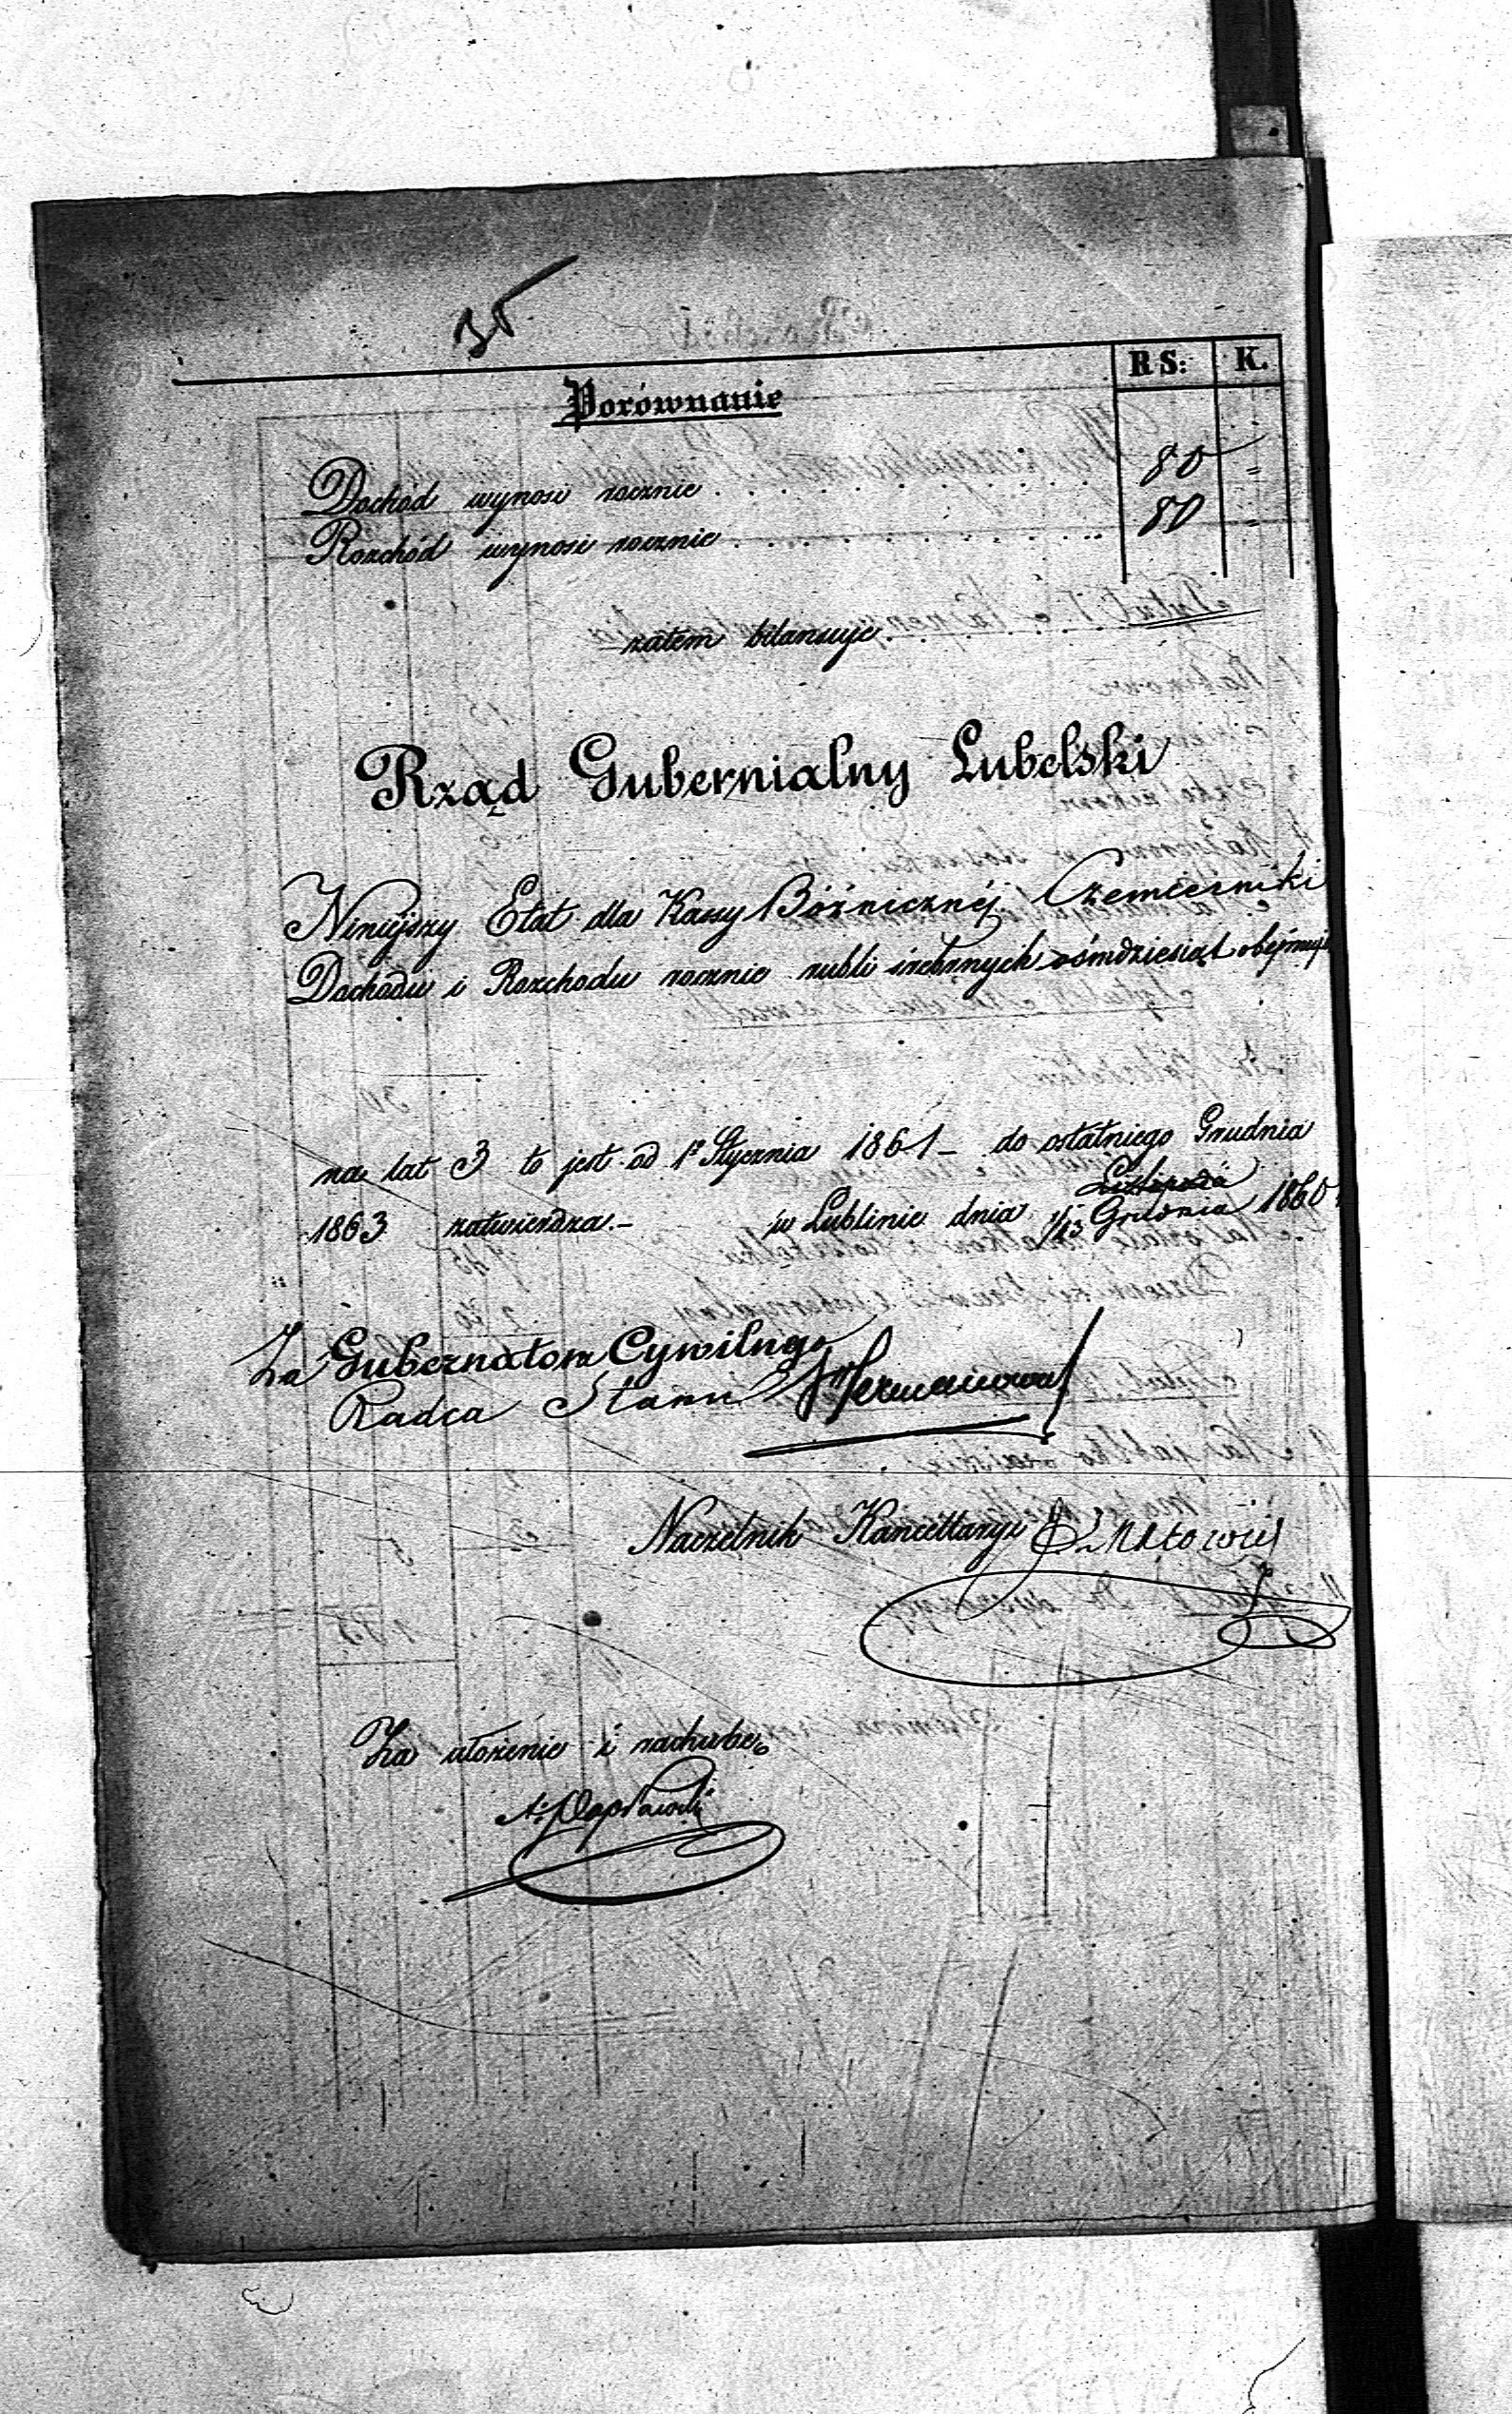 35
RS: K.
Porównanie
Dochód wynosi rocznie . . . . . . . . . . . . 80 "
Rozchód wynosi rocznie . . . . . . . . . . . . 80 "
zatem bilansuje . . . . . . . .
Rząd Gubernialny Lubelski
Niniejszy Etat dla Kassy Bóżnicznéj Czemierniki
Dochodu i Rozchodu rocznie rubli srebrnych ośmdziesiąt obejmując
na lat 3 to jest od 1o Stycznia 1861 – do ostatniego Grudnia
Listopada
1863 zatwierdza. – w Lublinie dnia 1/13 Grudnia 1860
Za Gubernatora Cywilnego
Radca Stanu
Naczelnik Kancellaryi
Za ułożenie i rachubę